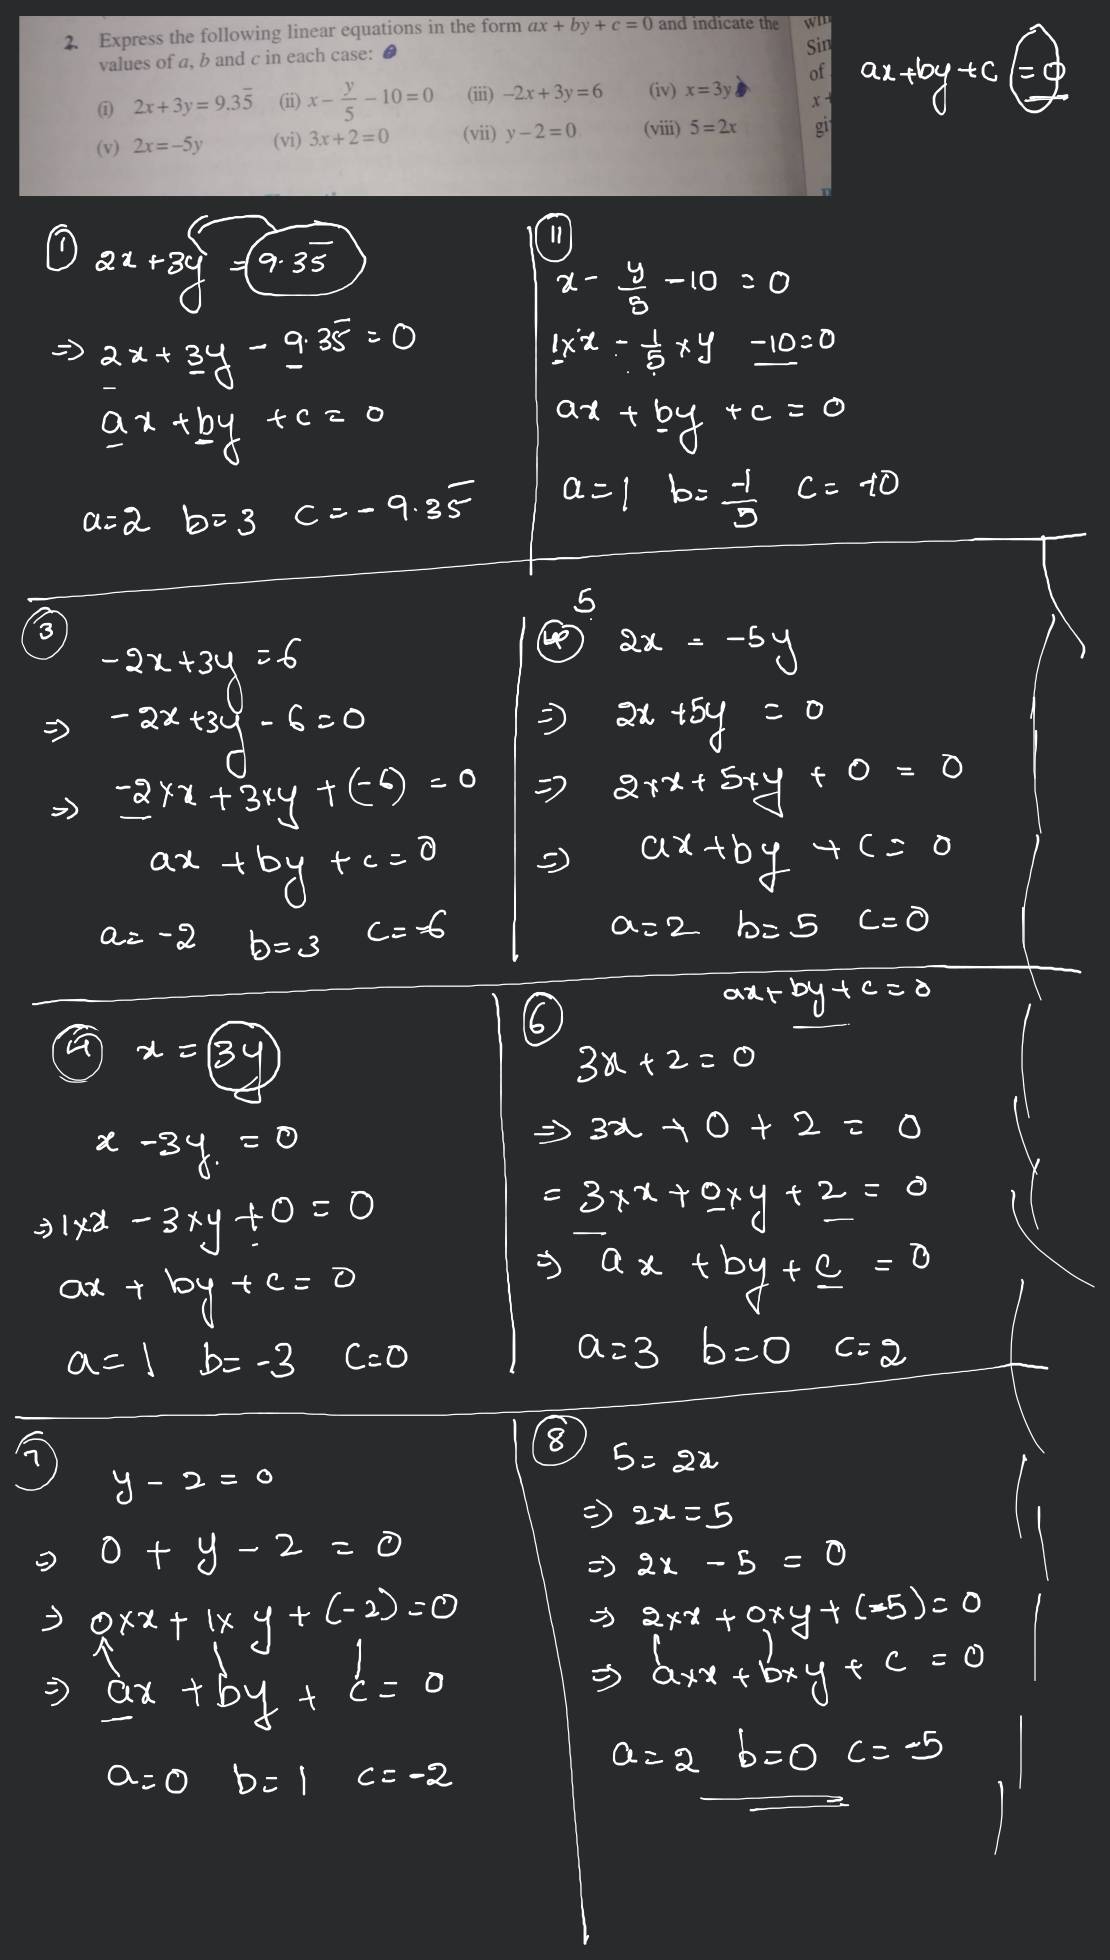 2. Express the following linear equations in the form ax + by + c = 0 and indicate the
values of a, b and c in each case:
(i) 2x + 3y = 9.35̅ (ii) x – y/5 – 10 = 0 (iii) –2x + 3y = 6 (iv) x = 3y
(v) 2x = –5y (vi) 3x + 2 = 0 (vii) y – 2 = 0 (viii) 5 = 2x
Sin
of
x +
ax+by+c=0
1
2x+3y = 9.35̅
=> 2x+3y - 9.35̅ = 0
ax+by +c = 0
a=2 b=3 c=-9.35̅
11
x - y/5 - 10 = 0
1×x - 1/5 × y -10=0
ax + by + c = 0
a=1 b= -1/5 c= -10
3
-2x+3y = 6
=> -2x+3y - 6 = 0
=> -2×x + 3×y + (-6) = 0
ax + by + c = 0
a= -2 b=3 c= -6
5
2x = -5y
=> 2x +5y = 0
=> 2×x + 5×y + 0 = 0
=> ax+by + c = 0
a=2 b=5 c=0
4 x = 3y
x - 3y = 0
=> 1×x - 3×y + 0 = 0
ax + by + c = 0
a=1 b= -3 c=0
6
ax+by+c=0
3x + 2 = 0
=> 3x + 0 + 2 = 0
= 3×x + 0×y + 2 = 0
=> ax + by + c = 0
a=3 b=0 c=2
7
y - 2 = 0
=> 0 + y - 2 = 0
=> 0×x + 1×y + (-2) = 0
=> ax + by + c = 0
a=0 b=1 c=-2
8
5 = 2x
=> 2x = 5
=> 2x - 5 = 0
=> 2×x + 0×y + (-5) = 0
=> a×x + b×y + c = 0
a=2 b=0 c=-5